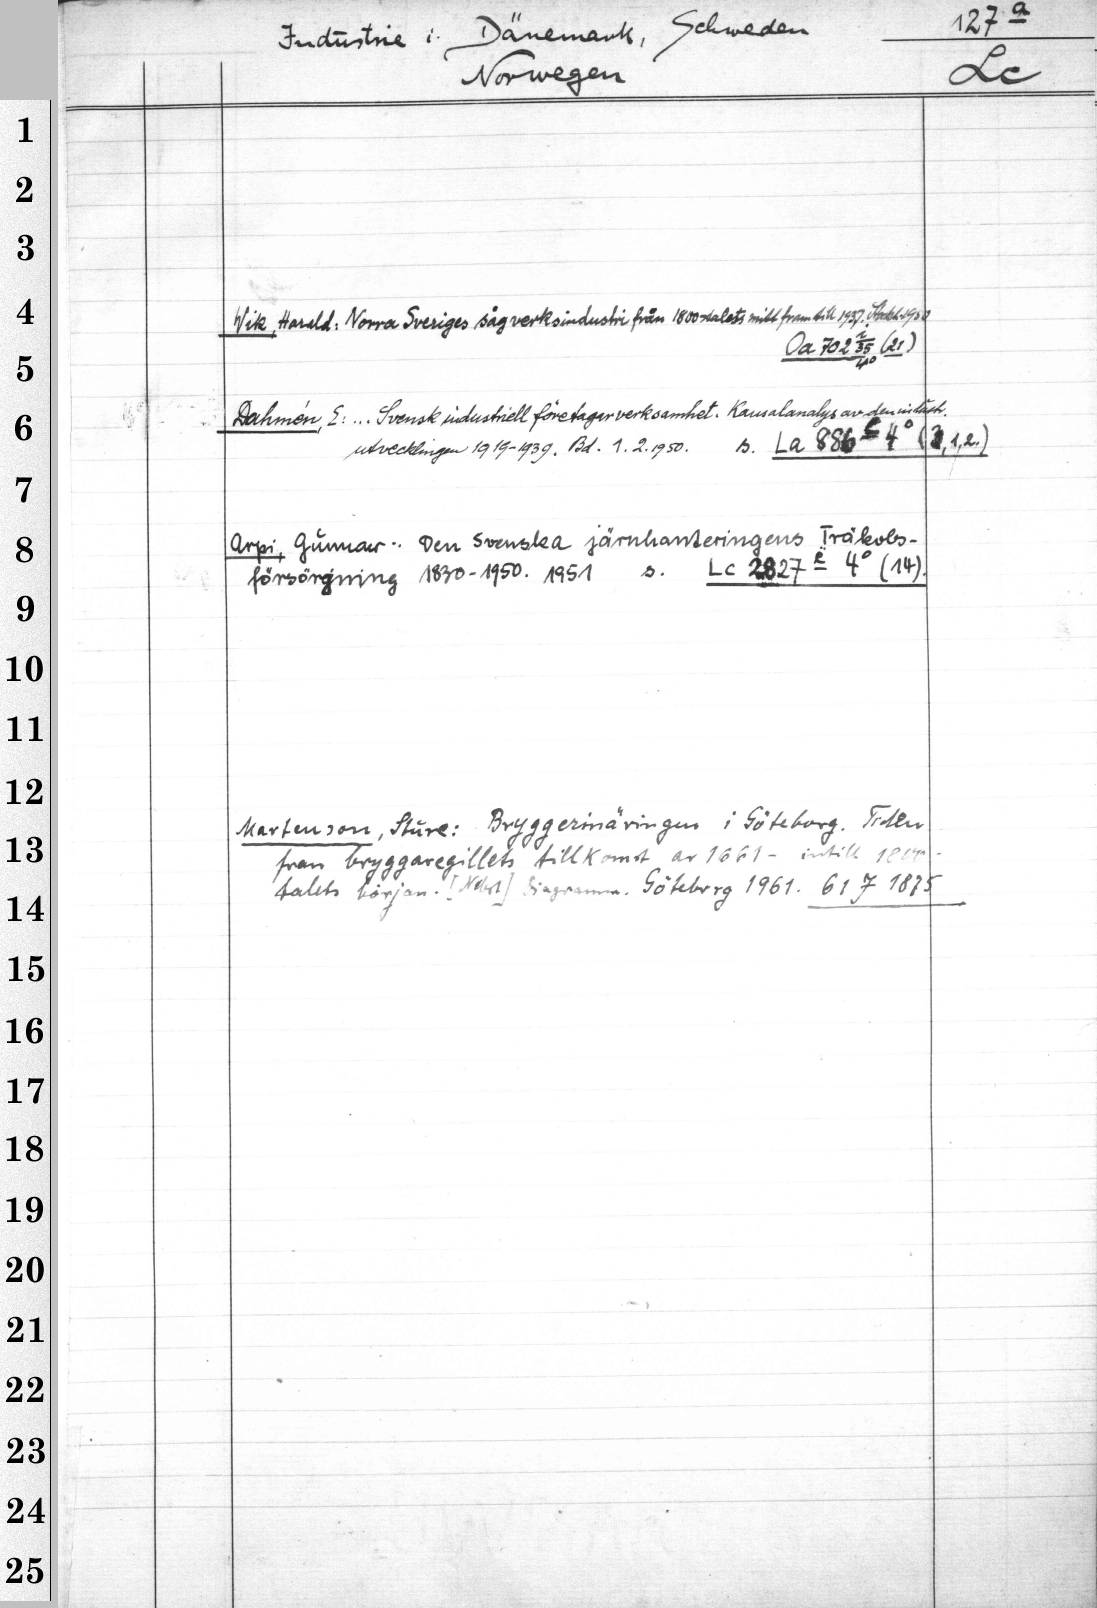 Industrie i. Dänemark, Schweden
Norwegen
127 a
Lc
1
2
3
4
5
6
7
8
9
10
11
12
13
14
15
16
17
18
19
20
21
22
23
24
25
Wik, Harald: Norra Sveriges sågverksindustri från 1800-talets mitt fram till 1937. Stockh. 1950
Oa 702 35 4° (21)
Dahmén, E: ... Svensk industriell företagarverksamhet. Kausalanalys av den industr.
utvecklingen 1919-1939. Bd. 1. 2. 1950. s. La 886 c 4° (3, 1, 2.)
Arpi, Gunnar: Den Svenska järnhanteringens Träkols-
försörgning 1830-1950. 1951 s. Lc 2827 e 4° (14).
Martenson, Sture: Bryggerinäringen i Göteborg. Tiden
fran bryggaregillets tillkomst ar 1661 - intill 1800-
talets början. [Nebst] Diagramm. Göteborg 1961. 61 7 1875